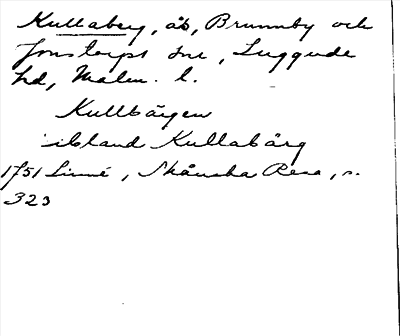 Kullaberg, ås, Brunnby och
Jonstorps snr, Luggude
hd, Malm. l.
Kullbärgen
ibland Kullabärg
1751 Linné, Skånska Resa, s.
323